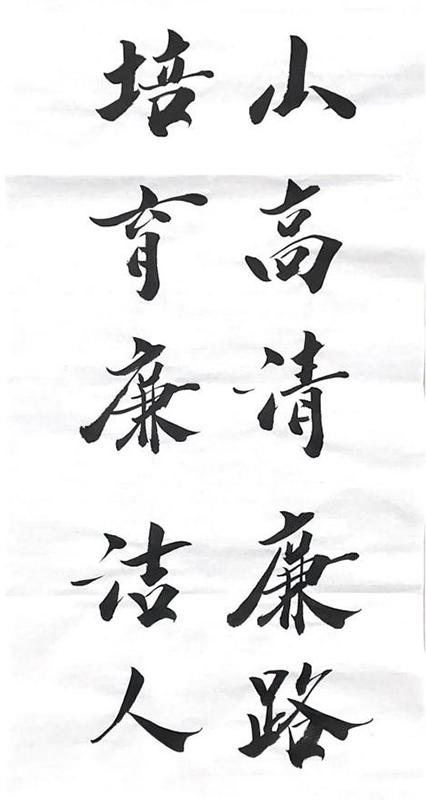 山高清廉路
培育廉洁人